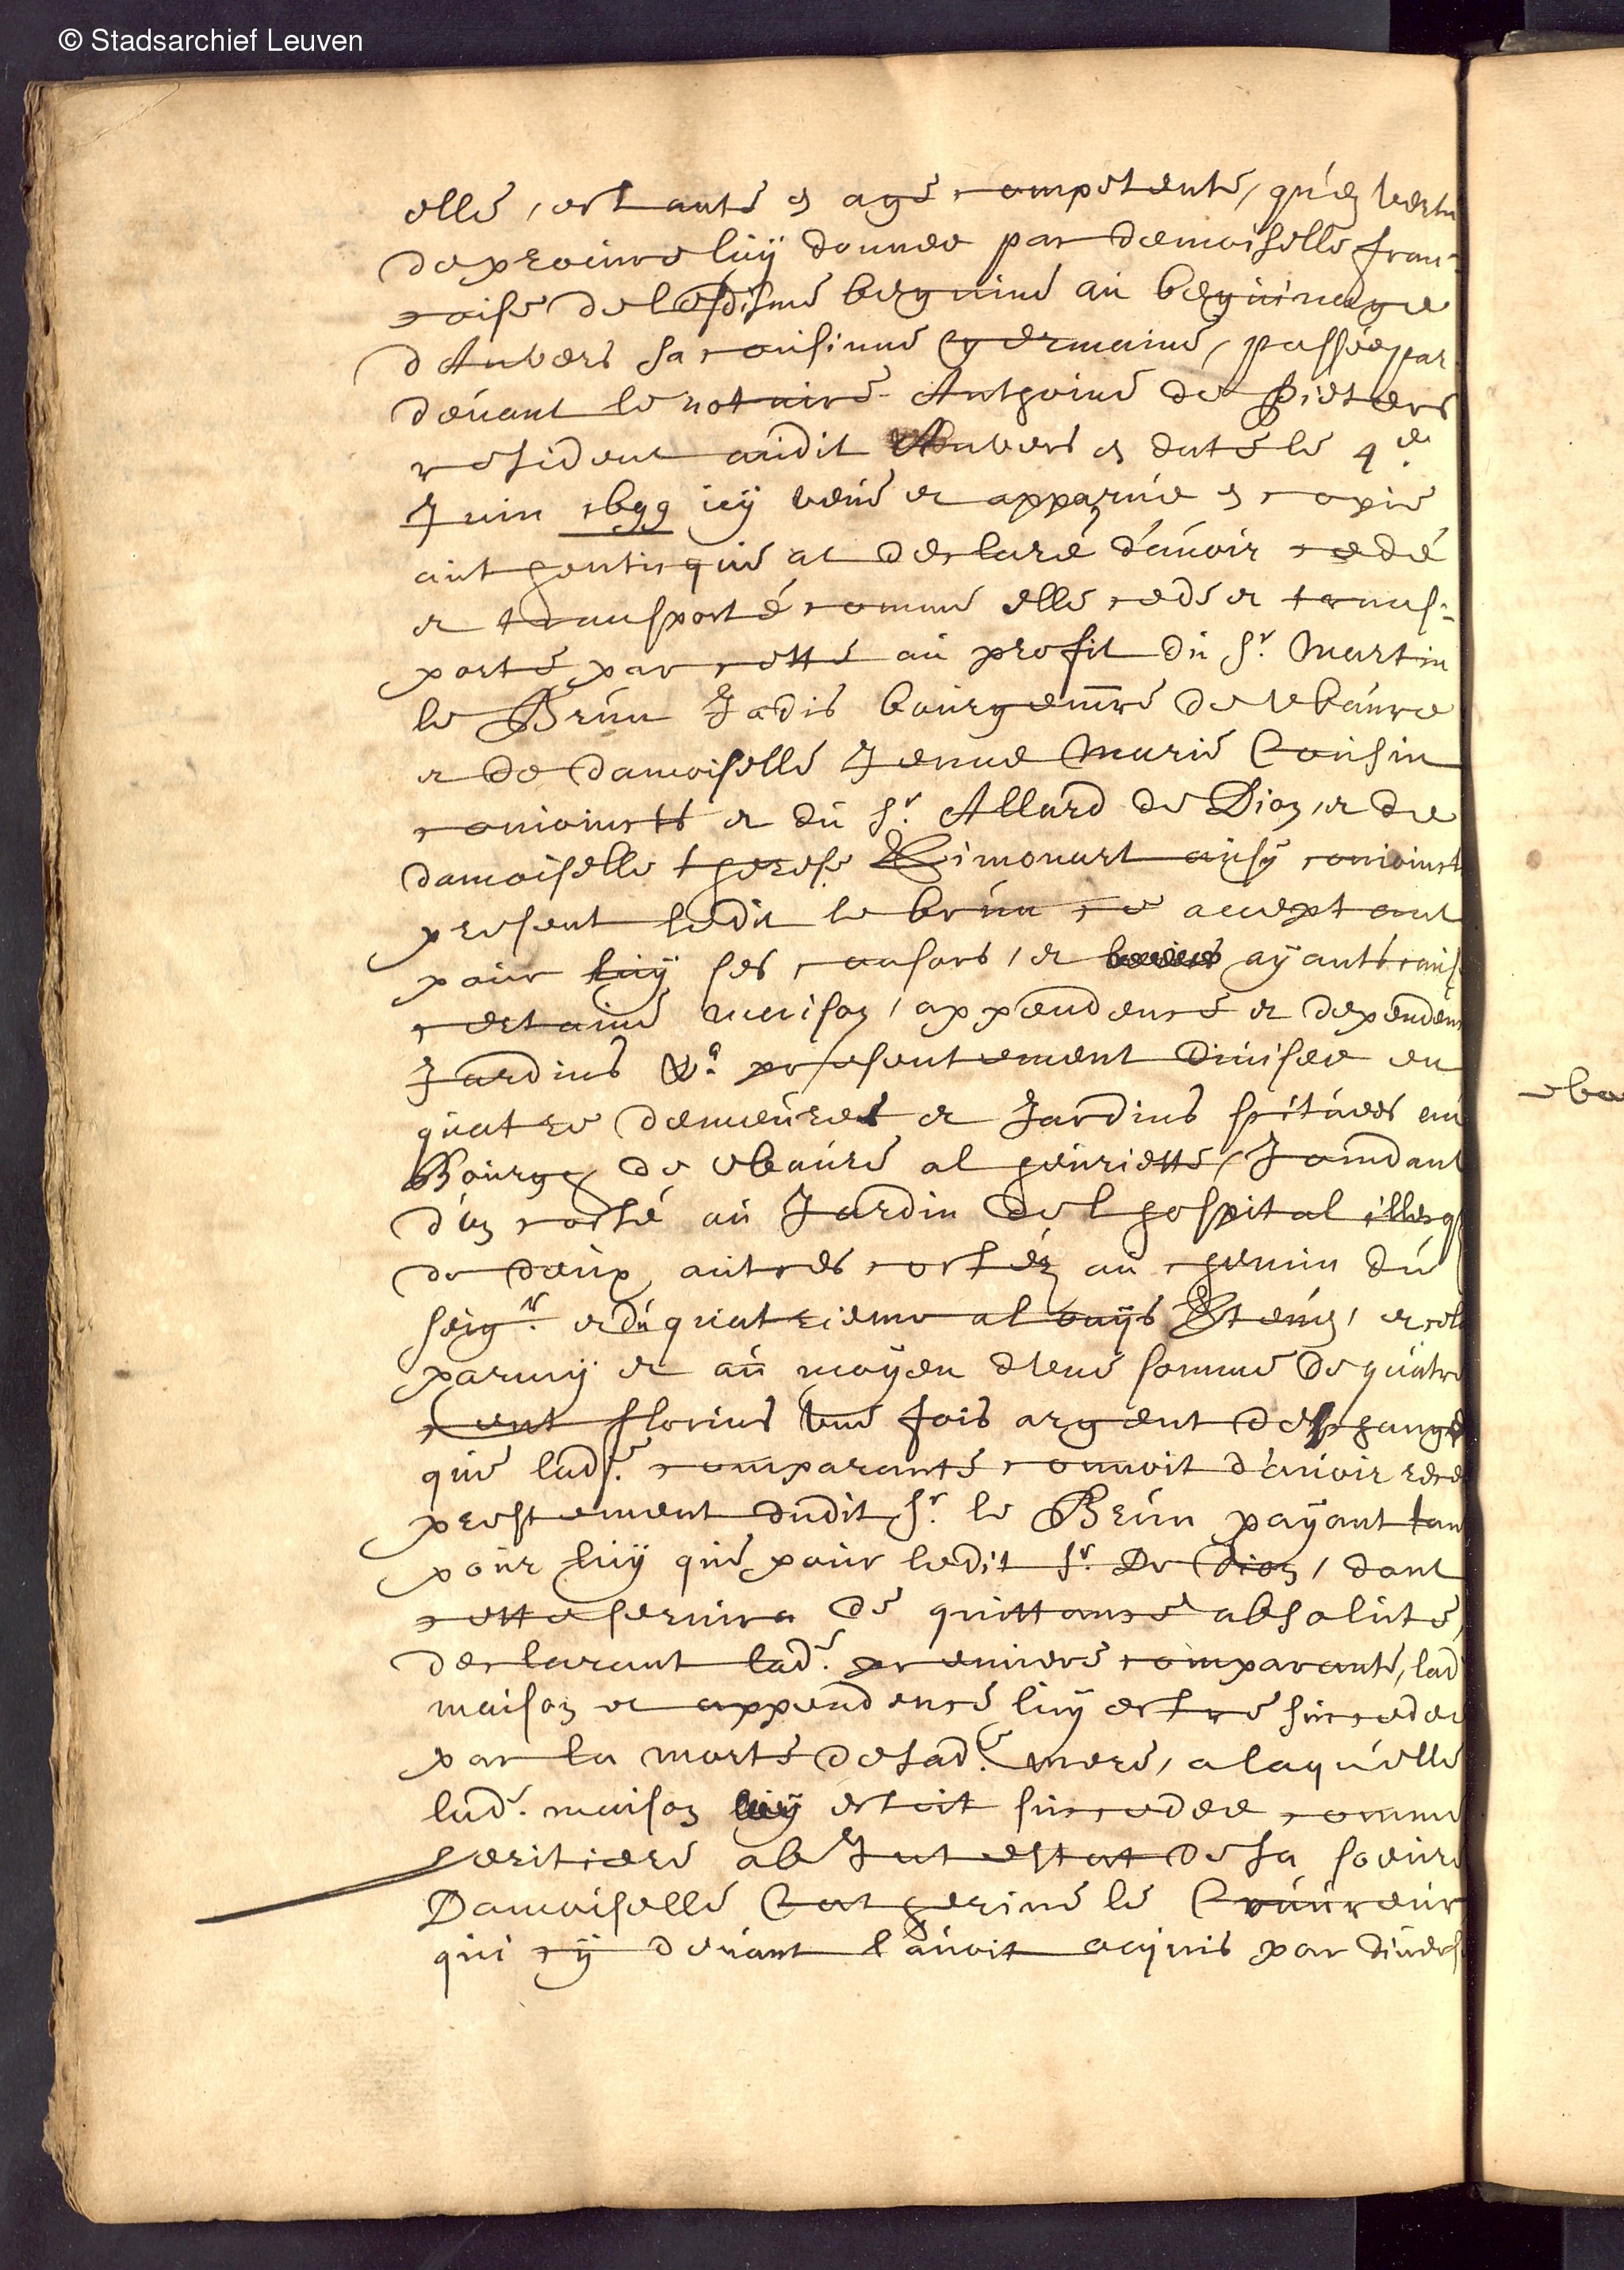 © Stadsarchief Leuven
elle, estante en age competente, qu'en vertu
de procure luÿ donnee par demoiselle fran=
coise del beguine au beguinage
d'Anvers sa cousinne germaine, passée par
devant le notaire Anthoine de Pieters
resident audit Anvers en date le 4e
Juin 1699 icÿ veue et apparue en copie
authenticque at declaré d'avoir cedé
et transporté comme elle cede et trans=
porte par cette au profit du Sr. Martin
le Brun Jadis bourgemre de Wavre
et de damoiselle Jenne Marie Cousin
conioincts et du Sr. Allard de Dion, et de
damoiselle therese Limonart aussÿ conioinct
present ledit le brun ce acceptant
pour luÿ ses consors, et ayants caus
certaine maison, appendence et dependen
Jardins &a. presentement divisee en
quatre demeures et Jardins scituees au
Bourg de Wavre al heuriette, Joindant
d'un costé au Jardin del hospital illecq
de deux autres costéz au chemin du
seigr. et du quatrieme al Steur, et cela
parmÿ et au moÿen d'une somme de quatre
cent florins une fois argent de change
que lade. comparante connoit d'avoir rece
prestement dudit Sr. le Brun paÿant tan
pour luÿ que pour ledit Sr. De Dion, dont
cette servira de quittance absolute,
declarant lade. premiere comparante, lad
maison et appendence luÿ estre succedee
par la morte de sade. mere, a laquelle
lade. maison estoit succedee comme
heritiere ab Intestat de sa soeure
Damoiselle Catherine le
qui cÿ devant l'avoit acquis par divers